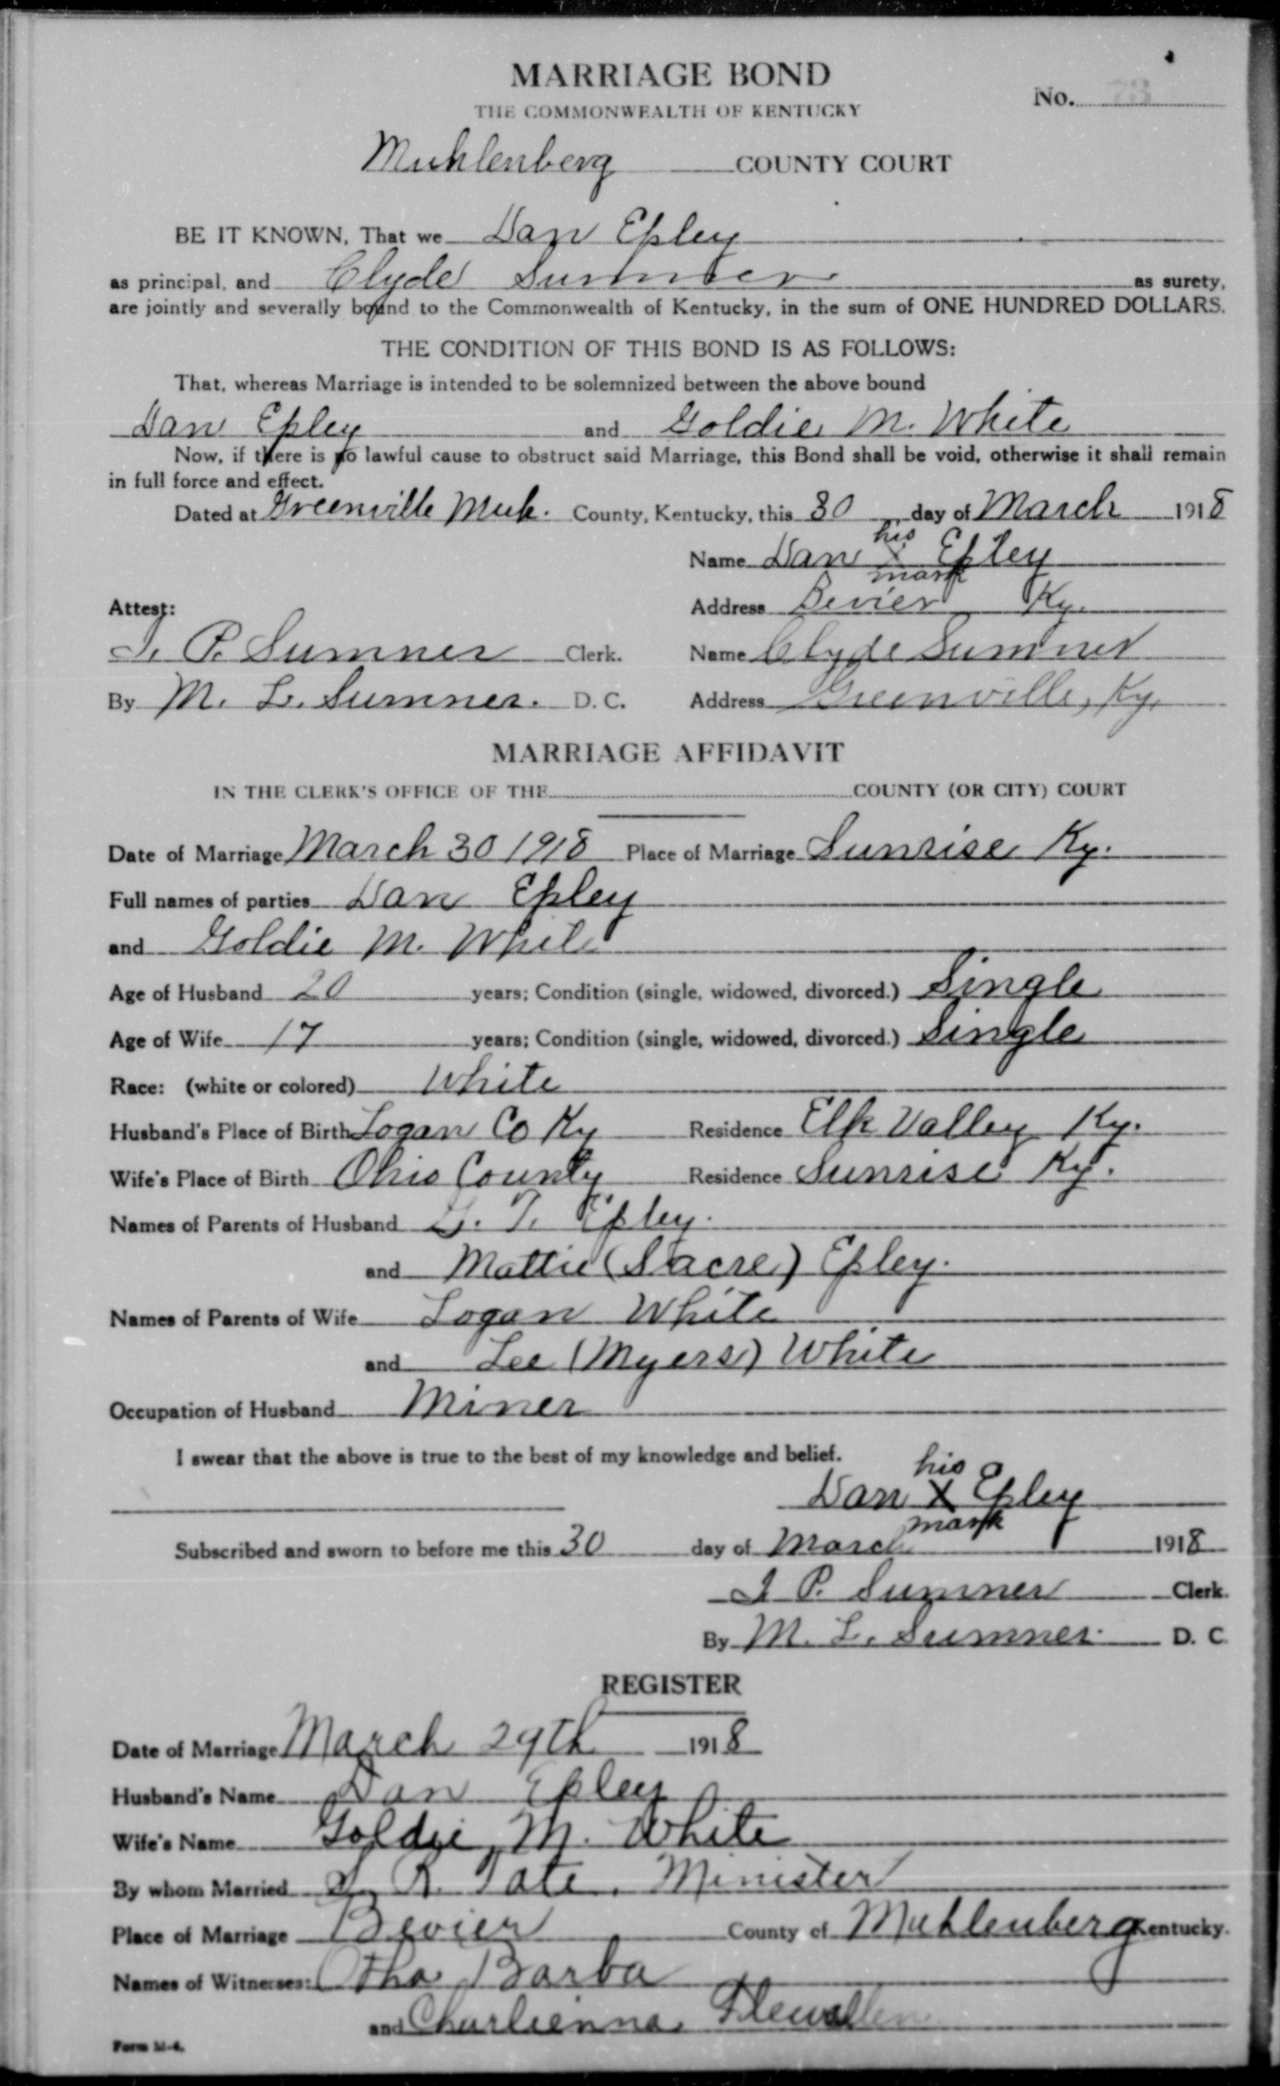 MARRIAGE BOND
THE COMMONWEALTH OF KENTUCKY
No. 73
Muhlenberg COUNTY COURT
BE IT KNOWN, That we Dan Epley
as principal, and Clyde Sumner as surety,
are jointly and severally bound to the Commonwealth of Kentucky, in the sum of ONE HUNDRED DOLLARS.
THE CONDITION OF THIS BOND IS AS FOLLOWS:
That, whereas Marriage is intended to be solemnized between the above bound
Dan Epley and Goldie M. White
Now, if there is no lawful cause to obstruct said Marriage, this Bond shall be void, otherwise it shall remain
in full force and effect.
Dated at Greenville Muh. County, Kentucky, this 30 day of March 1918
his
Name Dan X Epley
mark
Address Bevier Ky.
Attest:
T. P. Sumner Clerk. Name Clyde Sumner
By M. L. Sumner. D. C. Address Greenville, Ky.
MARRIAGE AFFIDAVIT
IN THE CLERK'S OFFICE OF THE COUNTY (OR CITY) COURT
Date of Marriage March 30 1918 Place of Marriage Sunrise Ky.
Full names of parties Dan Epley
and Goldie M. White
Age of Husband 20 years; Condition (single, widowed, divorced.) Single
Age of Wife 17 years; Condition (single, widowed, divorced.) Single
Race: (white or colored) White
Husband's Place of Birth Logan Co Ky Residence Elk Valley Ky.
Wife's Place of Birth Ohio County Residence Sunrise Ky.
Names of Parents of Husband G. T. Epley.
and Mattie (Sacre) Epley.
Names of Parents of Wife Logan White
and Lee (Myers) White
Occupation of Husband Miner
I swear that the above is true to the best of my knowledge and belief.
his
Dan X Epley
mark
Subscribed and sworn to before me this 30 day of March 1918
P. Sumner Clerk.
By M. L. Sumner. D. C.
REGISTER
Date of Marriage March 29th 1918
Husband's Name Dan Epley
Wife's Name Goldie M. White
By whom Married R. Tate, Minister
Place of Marriage Bevier County of Muhlenberg Kentucky.
Names of Witnesses: Otha Barba
and Charlienna Flewallen
Form M-4.